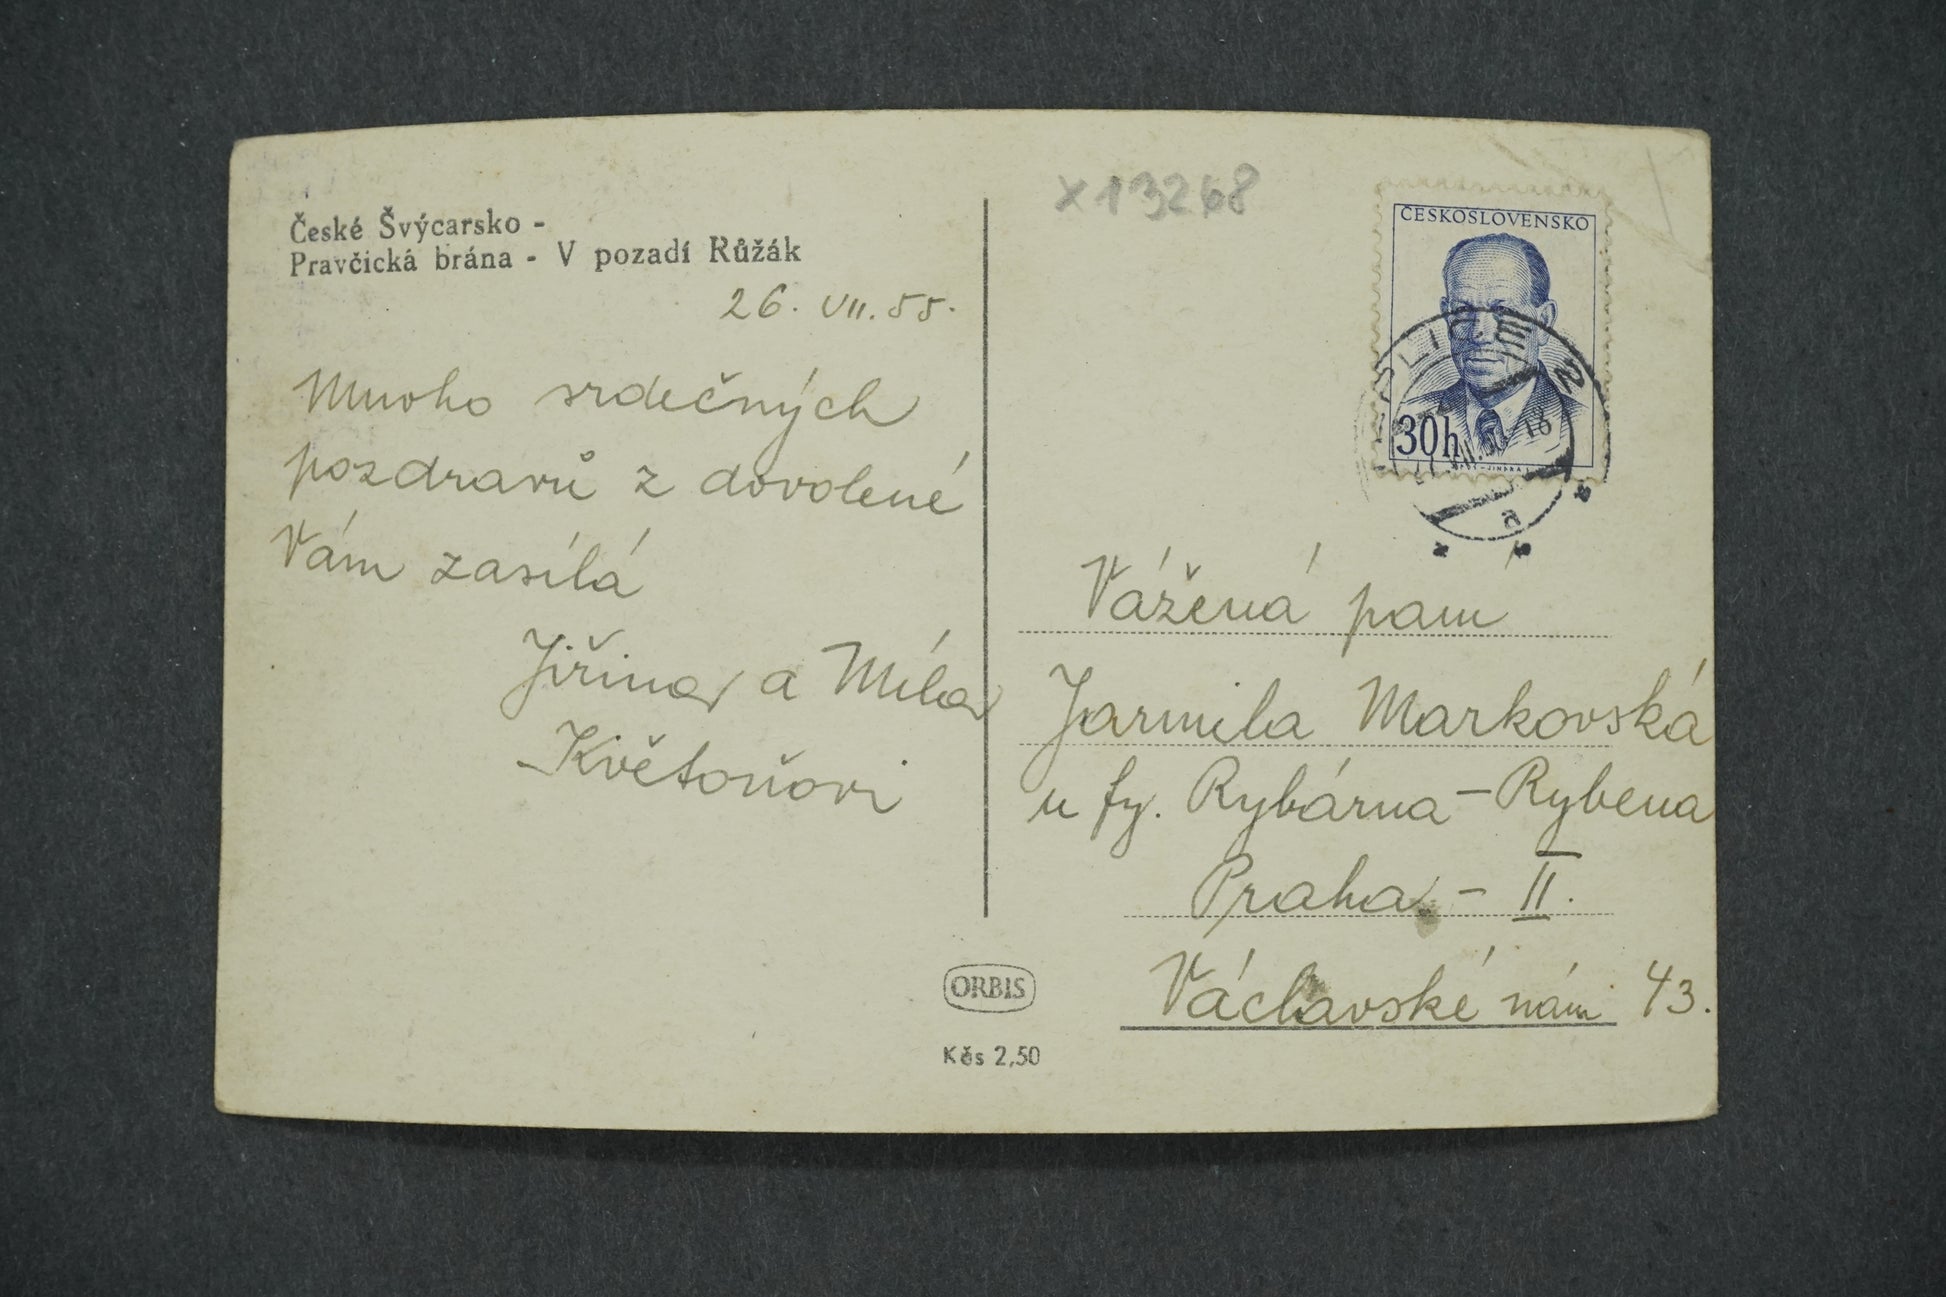 České Švýcarsko -
Pravčická brána - V pozadí Růžák
26. VII. 55.
Mnoho srdečných
pozdravů z dovolené
Vám zasílá
Jiřina a Míla
Květoňovi
ORBIS
Kčs 2,50
x 13268
ČESKOSLOVENSKO
30h
Vážená paní
Jarmila Markovská
u fy. Rybárna - Rybena
Praha - II.
Václavské nám 43.